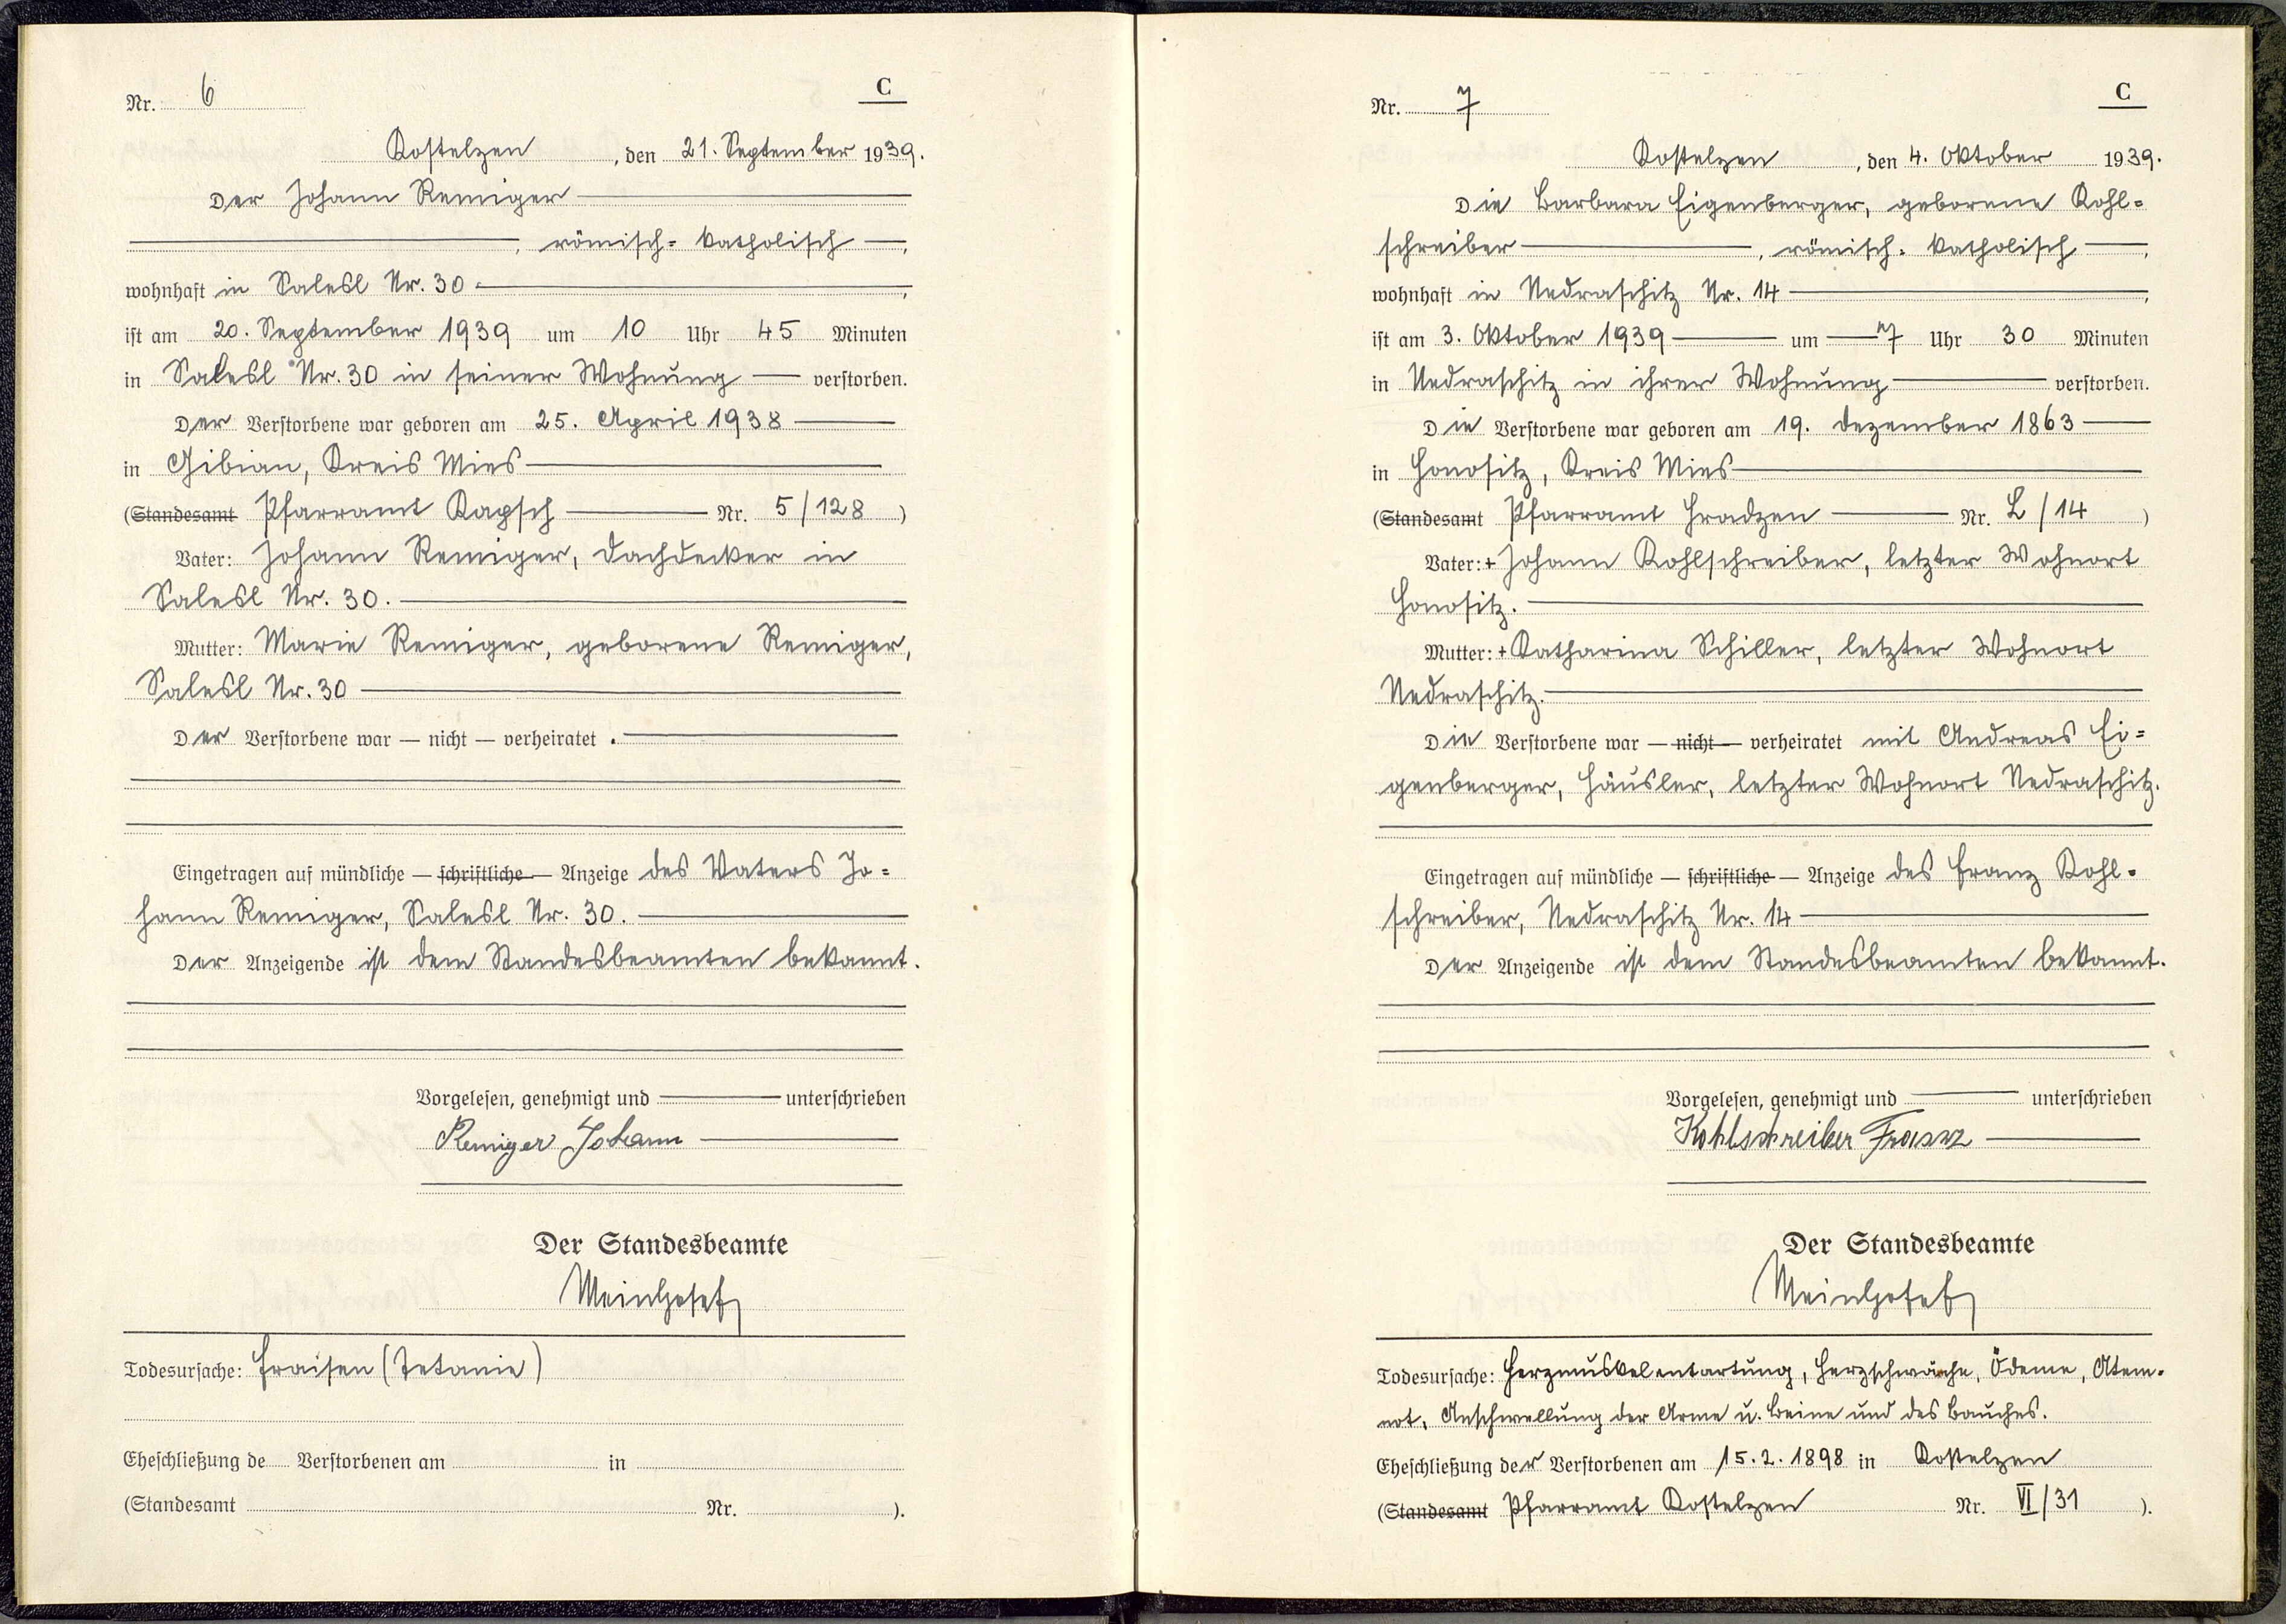 Nr. 6
C
Kostelzen, den 21. September 1939.
Der Johann Remiger
, römisch-katholisch,
wohnhaft in Salesl Nr. 30,
ist am 20. September 1939 um 10 Uhr 45 Minuten
in Salesl Nr. 30 in seiner Wohnung verstorben.
Der Verstorbene war geboren am 25. April 1938
in Gibian, Kreis Mies
(Standesamt Pfarramt Kapsch Nr. 5/128)
Vater: Johann Remiger, Dachdecker in
Salesl Nr. 30.
Mutter: Marie Remiger, geborene Remiger,
Salesl Nr. 30
Der Verstorbene war — nicht — verheiratet.
Eingetragen auf mündliche — schriftliche — Anzeige des Vaters Jo=
hann Remiger, Salesl Nr. 30.
Der Anzeigende ist dem Standesbeamten bekannt.
Vorgelesen, genehmigt und unterschrieben
Remiger Johann
Der Standesbeamte
Todesursache: Fraisen (Tetanie)
Eheschließung de Verstorbenen am in
(Standesamt Nr. ).
Nr. 7
C
Kostelzen, den 4. Oktober 1939.
Die Barbara Eigenberger, geborene Kohl=
schreiber, römisch-katholisch,
wohnhaft in Nedraschitz Nr. 14,
ist am 3. Oktober 1939 um 7 Uhr 30 Minuten
in Nedraschitz in ihrer Wohnung verstorben.
Die Verstorbene war geboren am 19. Dezember 1863
in Honositz, Kreis Mies
(Standesamt Pfarramt Hradzen Nr. L/14)
Vater: + Johann Kohlschreiber, letzter Wohnort
Honositz.
Mutter: + Katharina Schiller, letzter Wohnort
Nedraschitz.
Die Verstorbene war — nicht — verheiratet mit Andreas Ei=
genberger, Häusler, letzter Wohnort Nedraschitz.
Eingetragen auf mündliche — schriftliche — Anzeige des Franz Kohl=
schreiber, Nedraschitz Nr. 14
Der Anzeigende ist dem Standesbeamten bekannt.
Vorgelesen, genehmigt und unterschrieben
Kohlschreiber Franz
Der Standesbeamte
Todesursache: Herzmuskelentartung, Herzschwäche, Ödeme, Atem=
not, Anschwellung der Arme u. Beine und des Bauches.
Eheschließung der Verstorbenen am 15.2.1898 in Kostelzen
(Standesamt Pfarramt Kostelzen Nr. VI/31).